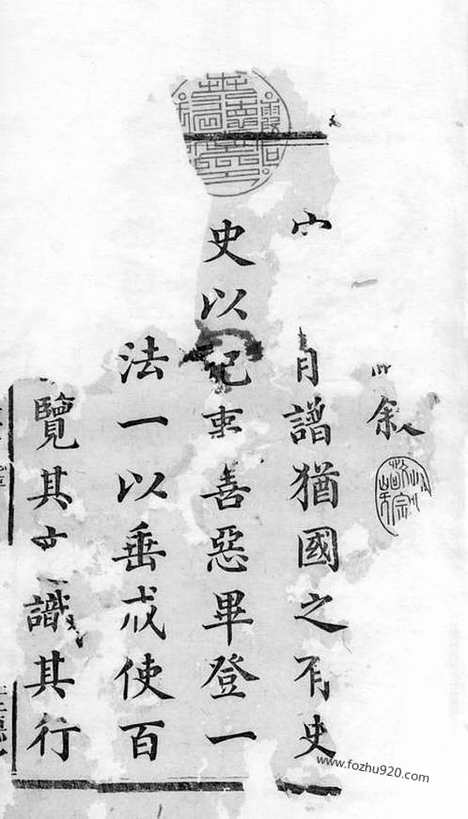 叙
譜猶國之有史
史以記事善惡畢登一
法一以垂戒使百
覽其識其行
www.fozhu920.com